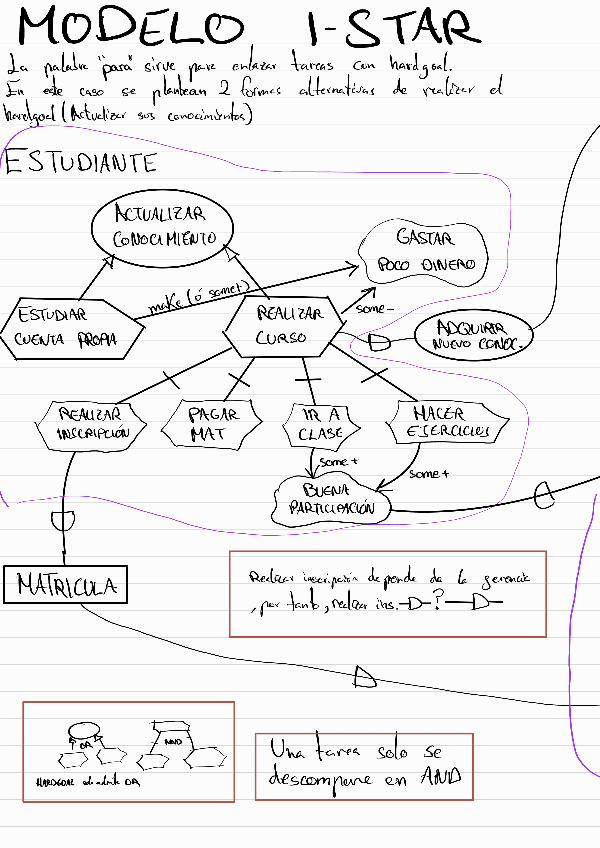 MODELO I-STAR
La palabra "para" sirve para enlazar tareas con hardgoal.
En este caso se plantean 2 formas alternativas de realizar el
hardgoal (Actualizar sus conocimientos)
ESTUDIANTE
ACTUALIZAR
CONOCIMIENTO
GASTAR
POCO DINERO
make (ó some+)
ESTUDIAR
CUENTA PROPIA
REALIZAR
CURSO
some-
ADQUIRIR
NUEVO CONOC.
REALIZAR
INSCRIPCIÓN
PAGAR
MAT
IR A
CLASE
HACER
EJERCICIOS
some+
some+
BUENA
PARTICIPACIÓN
MATRICULA
Realizar inscripción depende de la gerencia
, por tanto, realizar ins. ?
OR
AND
HARDGOAL solo admite OR
Una tarea solo se
descompone en AND